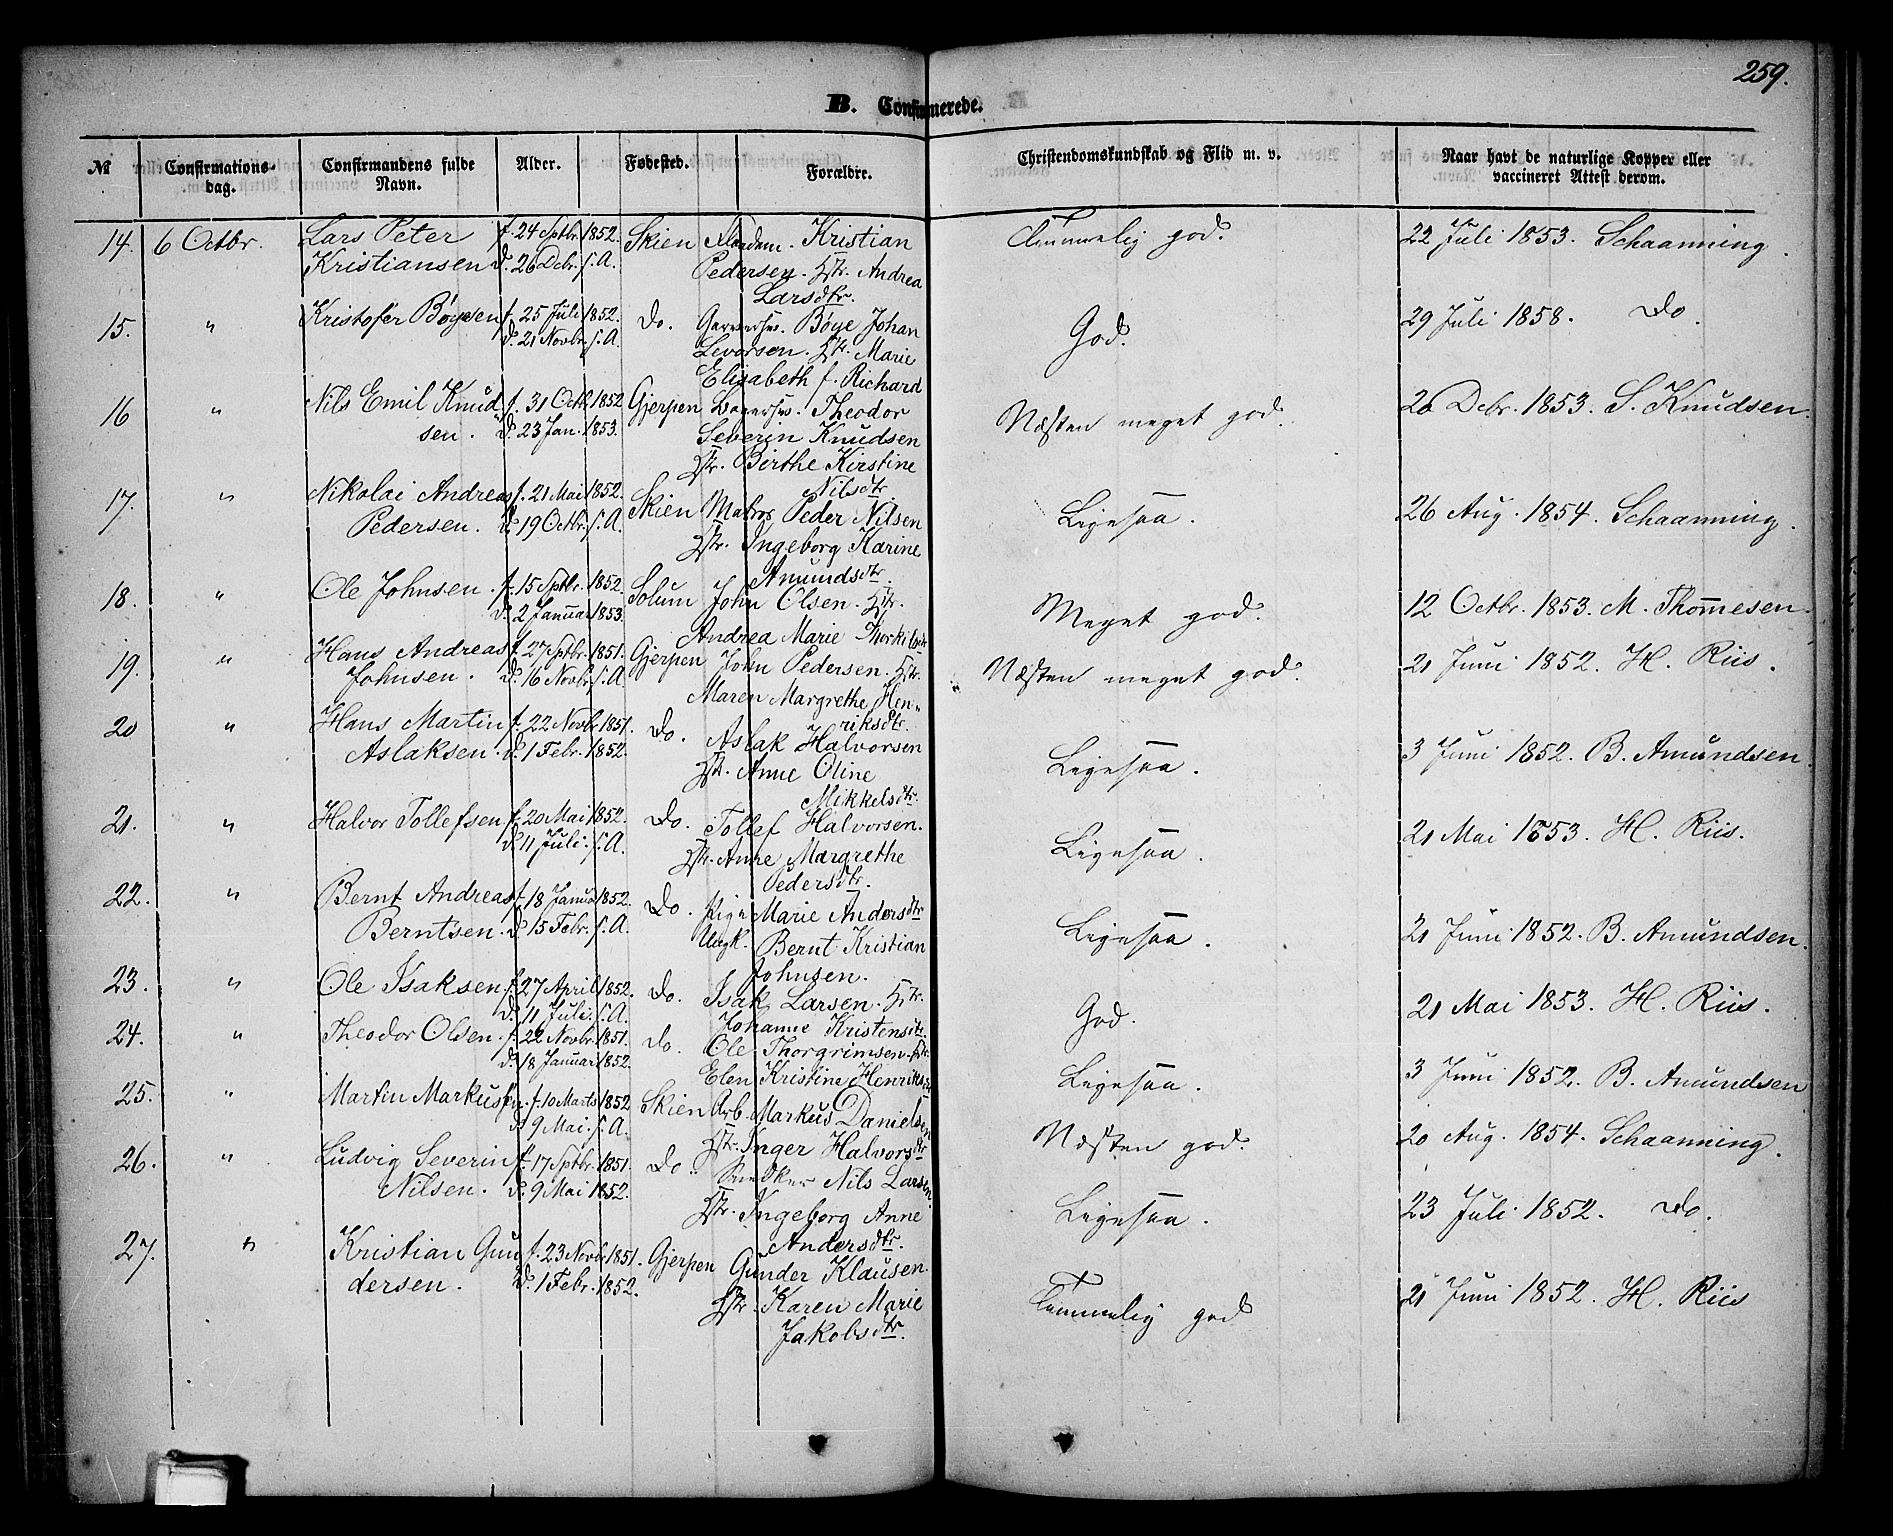 259.
B. Confirmerede.
№ Confirmations-dag. Confirmandens fulde Navn. Alder. Fødested. Forældre. Christendomskundskab og Flid m. v. Naar havt de naturlige Kopper eller vaccineret Attest derom.
14. 6 Octbr. Lars Peter f. 24 Sptbr. 1852. Skien Kristian Temmelig god. 22 Juli 1853. Schaanning.
Kristiansen d. 26 Debr. s. A. Pedersen. Hstr. Andrea
Larsdtr.
15. " Kristofer Bøyesen f. 25 Juli 1852. Do. Garversv. Bøye Johan God. 29 Juli 1858. Do.
d. 21 Novbr. s. A. Levorsen. Hstr. Marie
Elisabeth f. Richard
16 " Nils Emil Knud f. 31 Octb. 1852 Gjerpen Bagersv. Theodor Næsten meget god. 26 Debr. 1853. S. Knudsen.
sen. d. 23 Jan. 1853. Severin Knudsen
Hstr. Birthe Kirstine
Nilsdtr.
17. " Nikolai Andreas f. 21 Mai 1852. Skien Matros Peder Nilsen Ligesaa. 26 Aug. 1854. Schaanning.
Pedersen. d. 19 Octbr. s. A. Hstr. Ingeborg Karine
Amundsdtr.
18. " Ole Johnsen. f. 15 Sptbr. 1852. Solum John Olsen. Hstr. Meget god. 12 Octbr. 1853. M. Thommesen.
d. 2 Januar 1853. Andrea Marie Thorkilsdtr
19. " Hans Andreas f. 27 Sptbr. 1851. Gjerpen John Pedersen. Hstr. Næsten meget god. 21 Juni 1852. H. Riis.
Johnsen. d. 16 Novbr. s. A. Maren Margrethe Hen-
riksdtr.
20 " Hans Martin f. 22 Novbr 1851. Do. Aslak Halvorsen Ligesaa. 3 Juni 1852. B. Amundsen.
Aslaksen. d. 1 Febr. 1852. Hstr. Anne Oline
Mikkelsdtr.
21. " Halvor Tollefsen f. 20 Mai 1852. Do. Tollef Halvorsen. Ligesaa. 21 Mai 1853. H. Riis.
d. 11 Juli. s. A. Hstr. Anne Margrethe
Pedersdtr.
22. " Bernt Andreas f. 18 Januar 1852. Do. Pige Marie Andersdtr Ligesaa. 21 Juni 1852. B. Amundsen.
Berntsen. d. 15 Febr. s. A. Ungk. Bernt Kristian
Johnsen.
23. " Ole Isaksen. f. 27 April 1852. Do. Isak Larsen. Hstr. God. 21 Mai 1853. H. Riis.
d. 11 Juli. s. A. Johanne Kristensdtr.
24. " Theodor Olsen. f. 22 Novbr. 1851. Do. Ole Thorgrimsen. Hstr. Ligesaa. 3 Juni 1852. B. Amundsen
d. 18 Januar 1852. Elen Kristine Henriksdtr
25. " Martin Markussen. f. 10 Marts 1852 Skien Arb. Markus Danielsen Næsten god. 20 Aug. 1854. Schaanning.
d. 9 Mai. s. A. Hstr. Inger Halvorsdtr
26. " Ludvig Severin f. 17 Sptbr. 1851. Do. Snedker Nils Larsen. Ligesaa. 23 Juli 1852. Do.
Nilsen. d. 9 Mai 1852. Hstr. Ingeborg Anne
Andersdtr.
27. " Kristian Gun f. 23 Novbr 1851. Gjerpen Gunder Klausen. Temmelig god 21 Juni 1852. H. Riis
dersen. d. 1 Febr. 1852. Hstr. Karen Marie
Jakobsdtr.